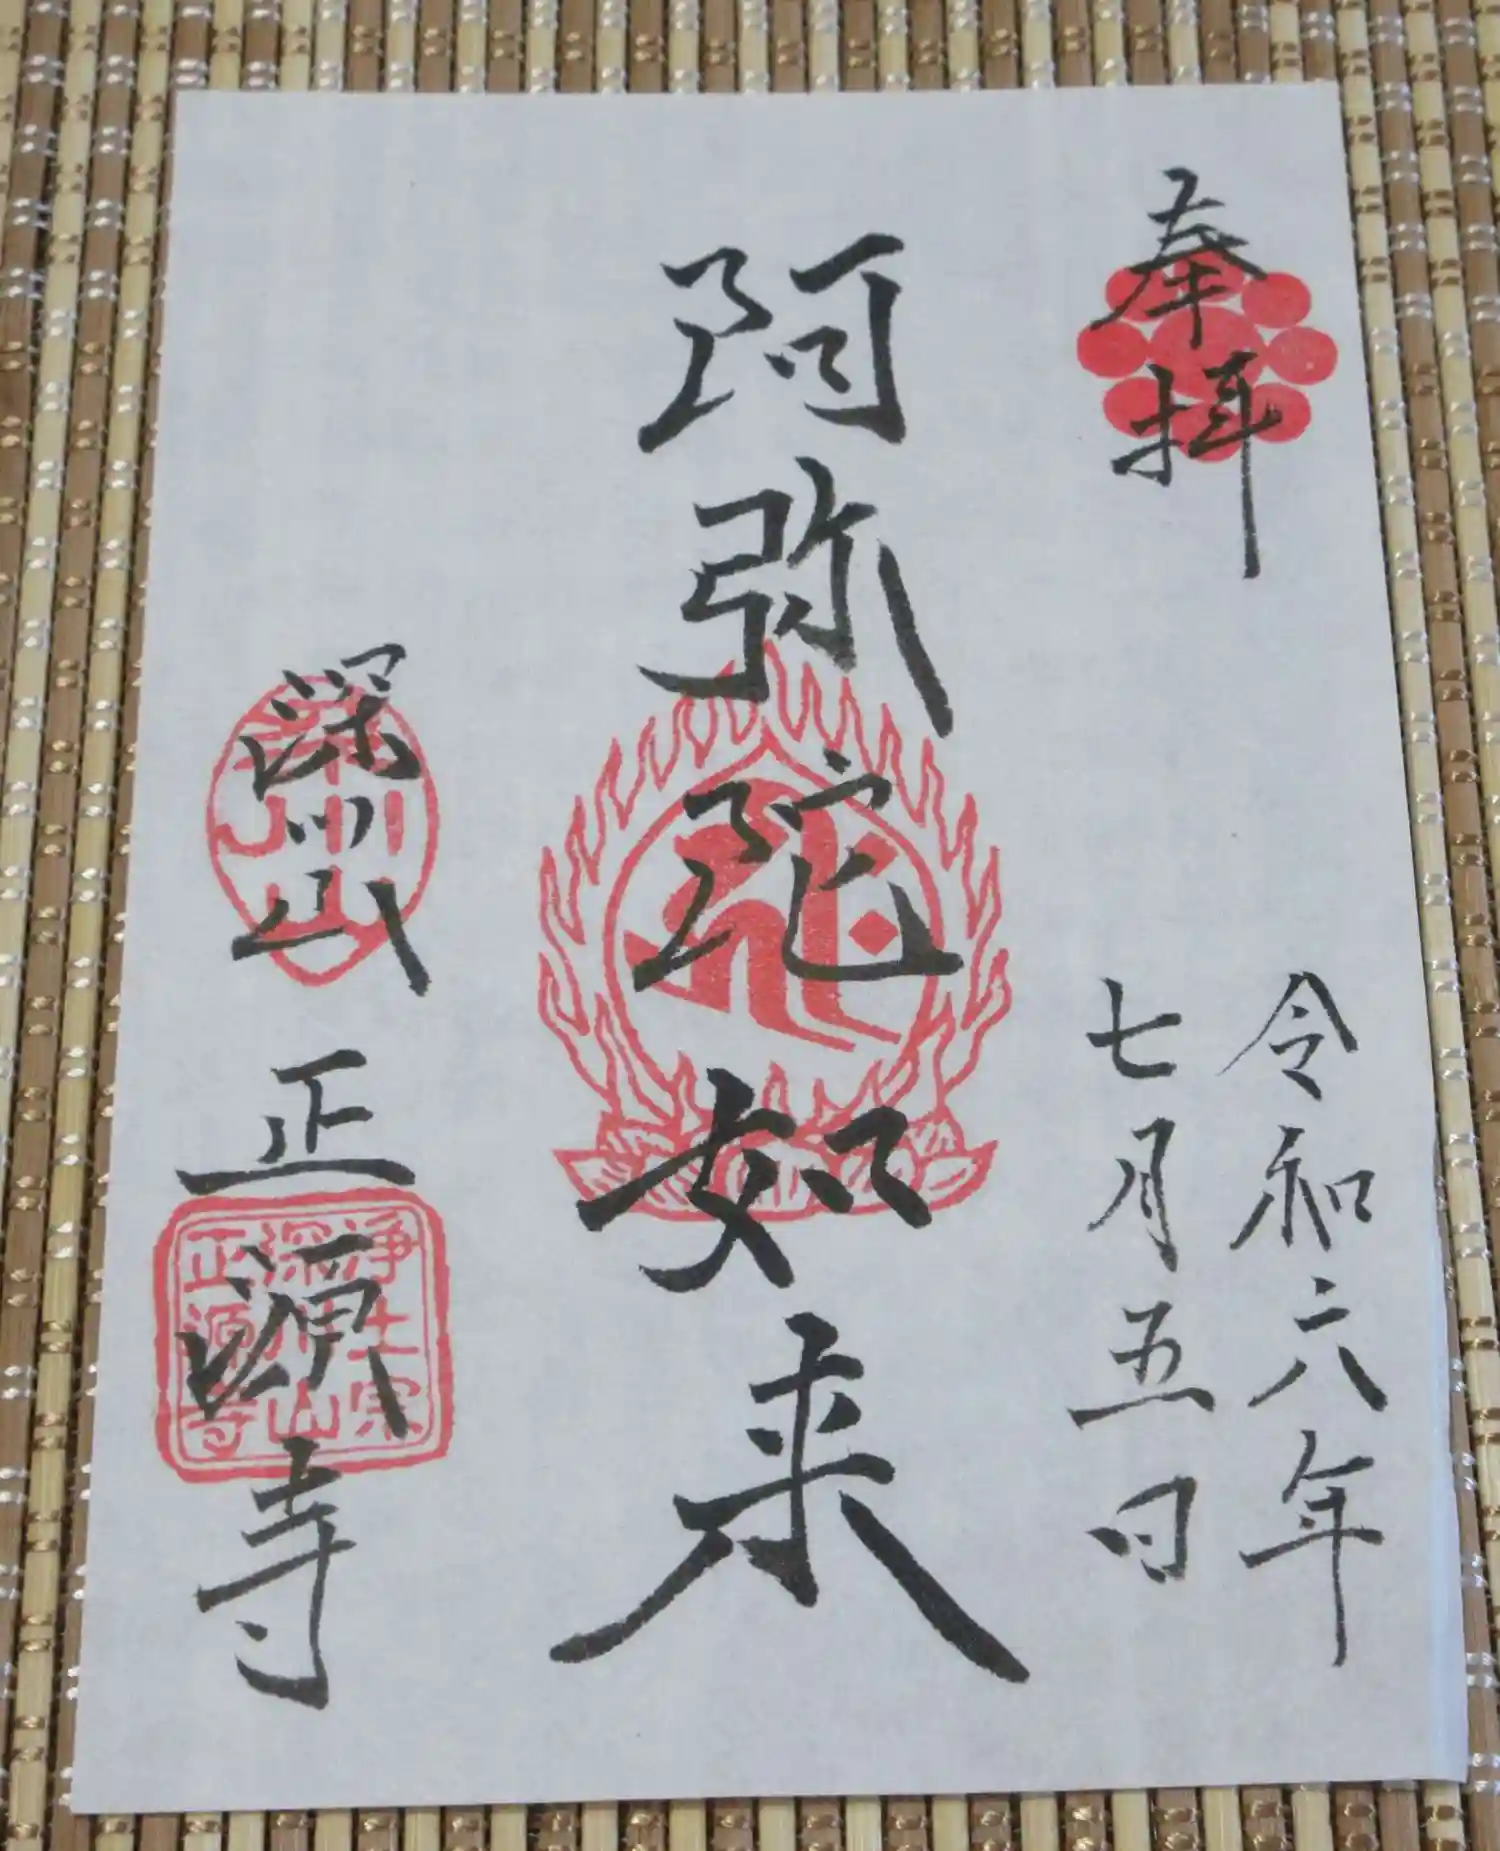 奉拝
令和六年
七月五日
阿弥陀如来
深川山
正源寺
浄土宗
深川山
正源寺